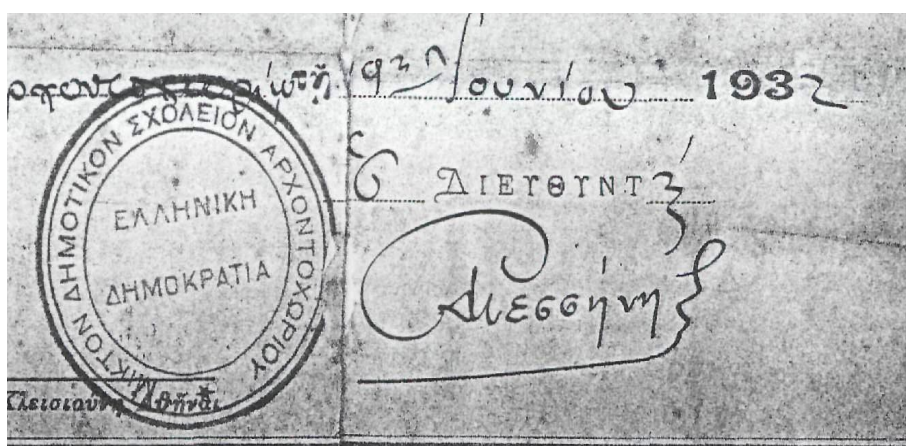 τῇ 9ῃ Ἰουνίου 1932
ΜΙΚΤΟΝ ΔΗΜΟΤΙΚΟΝ ΣΧΟΛΕΙΟΝ ΑΡΧΟΝΤΟΧΩΡΙΟΥ
ΕΛΛΗΝΙΚΗ
ΔΗΜΟΚΡΑΤΙΑ
Ὁ ΔΙΕΥΘΥΝΤής
Μεσσήνης
Κλεισιούνη Ἀθῆναι